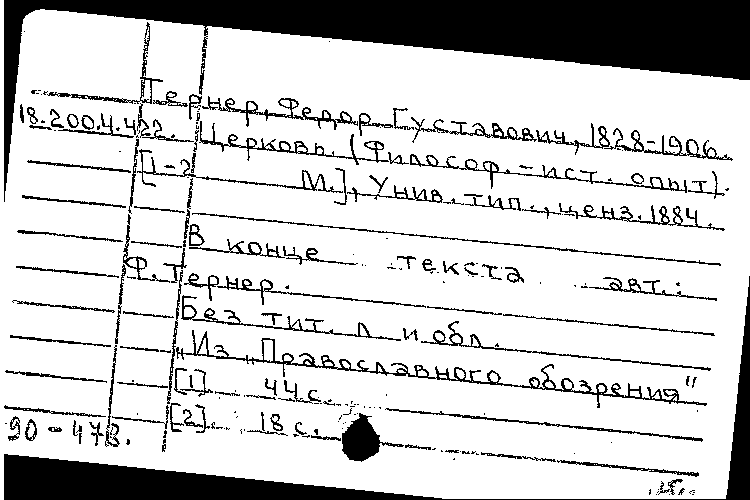 Тернер, Федор Густавович, 1828-1906.
18.200.4.422. Церковь. (Философ.-ист. опыт).
[1-2 М.], Унив. тип., ценз. 1884.
В конце текста авт.:
Ф. Тернер.
Без тит. л и обл.
"Из "Православного обозрения"
[1] 44 с.
[2]. 18 с.
90-473.